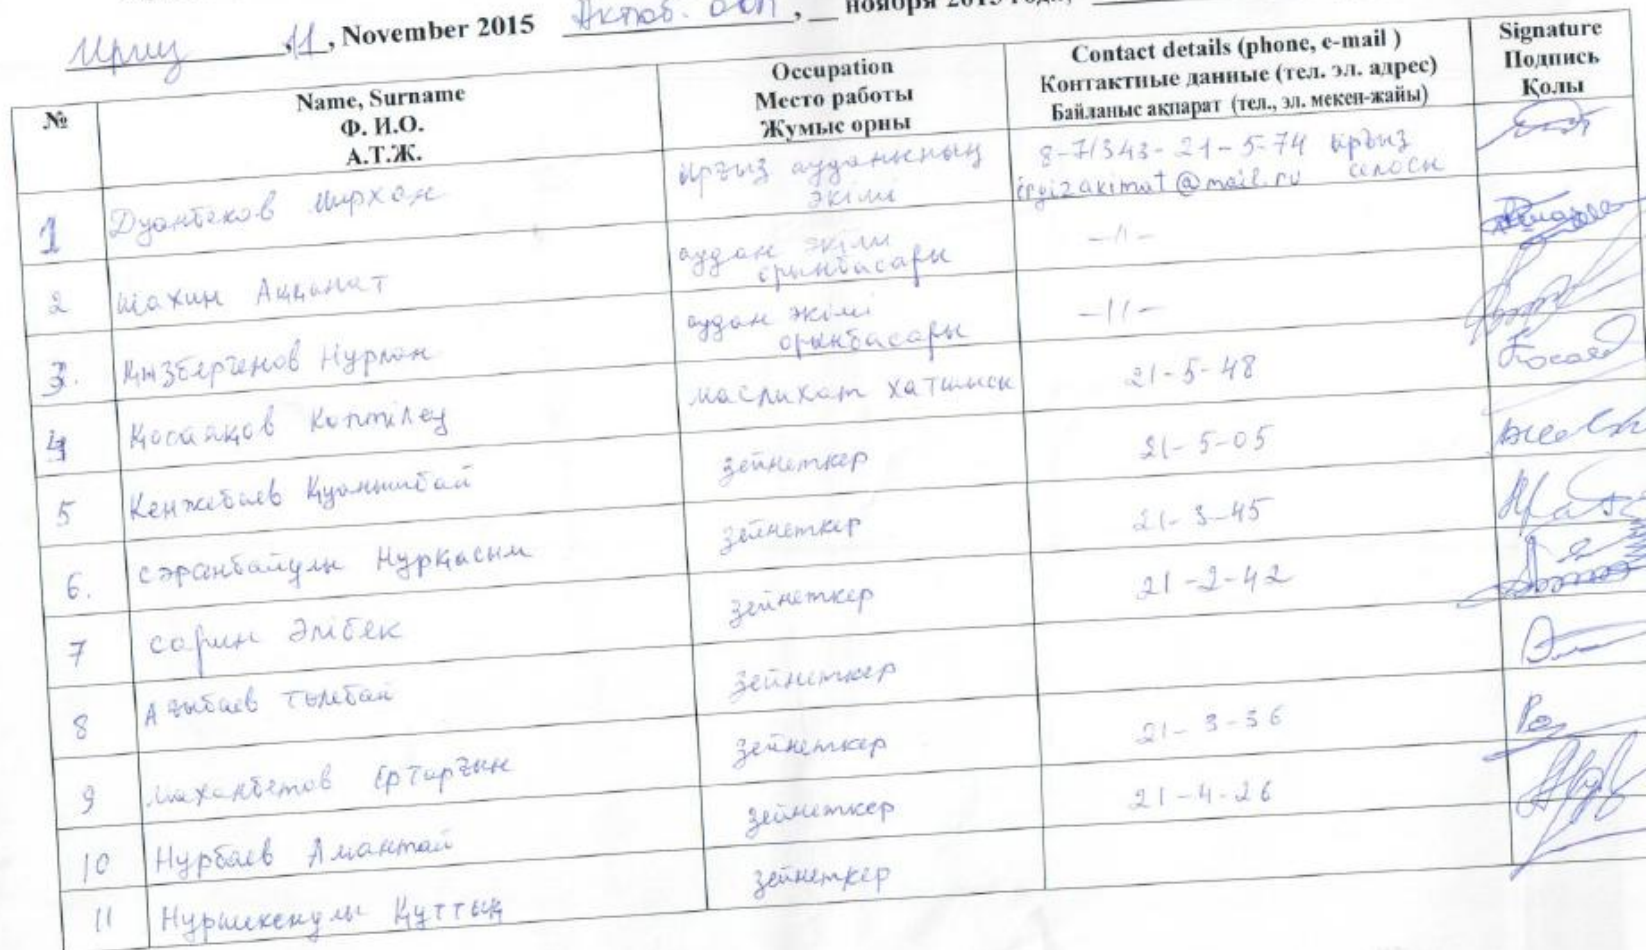 Иргиз 11, November 2015 Актюб. обл, __ ноября 2015 года,
№
Name, Surname
Ф. И.О.
А.Т.Ж.
Occupation
Место работы
Жумыс орны
Contact details (phone, e-mail )
Контактные данные (тел. эл. адрес)
Байланыс ақпарат (тел., эл. мекен-жайы)
Signature
Подпись
Қолы
1 Дуанбеков Мирхан
ырғыз ауданының
әкімі
8-71343-21-5-74 ырғыз
irgizakimat@mail.ru селосы
2 Шахин Аққанат
аудан әкімі
орынбасары
-11-
3. Қызбергенов Нурлан
аудан әкімі
орынбасары
-11-
4 Қосаяқов Коптілеу маслихат хатшысы 21-5-48
5 Кенжебаев Қуанышбай зейнеткер 21-5-05
6. Сәранбайулы Нурқасым зейнеткер 21-3-45
7 Сарин Әлібек зейнеткер 21-2-42
8 Ағыбаев Төлебай зейнеткер
9 Маханбетов Ертарғын зейнеткер 21-3-36
10 Нурбаев Амантай зейнеткер 21-4-26
11 Қуттық зейнеткер